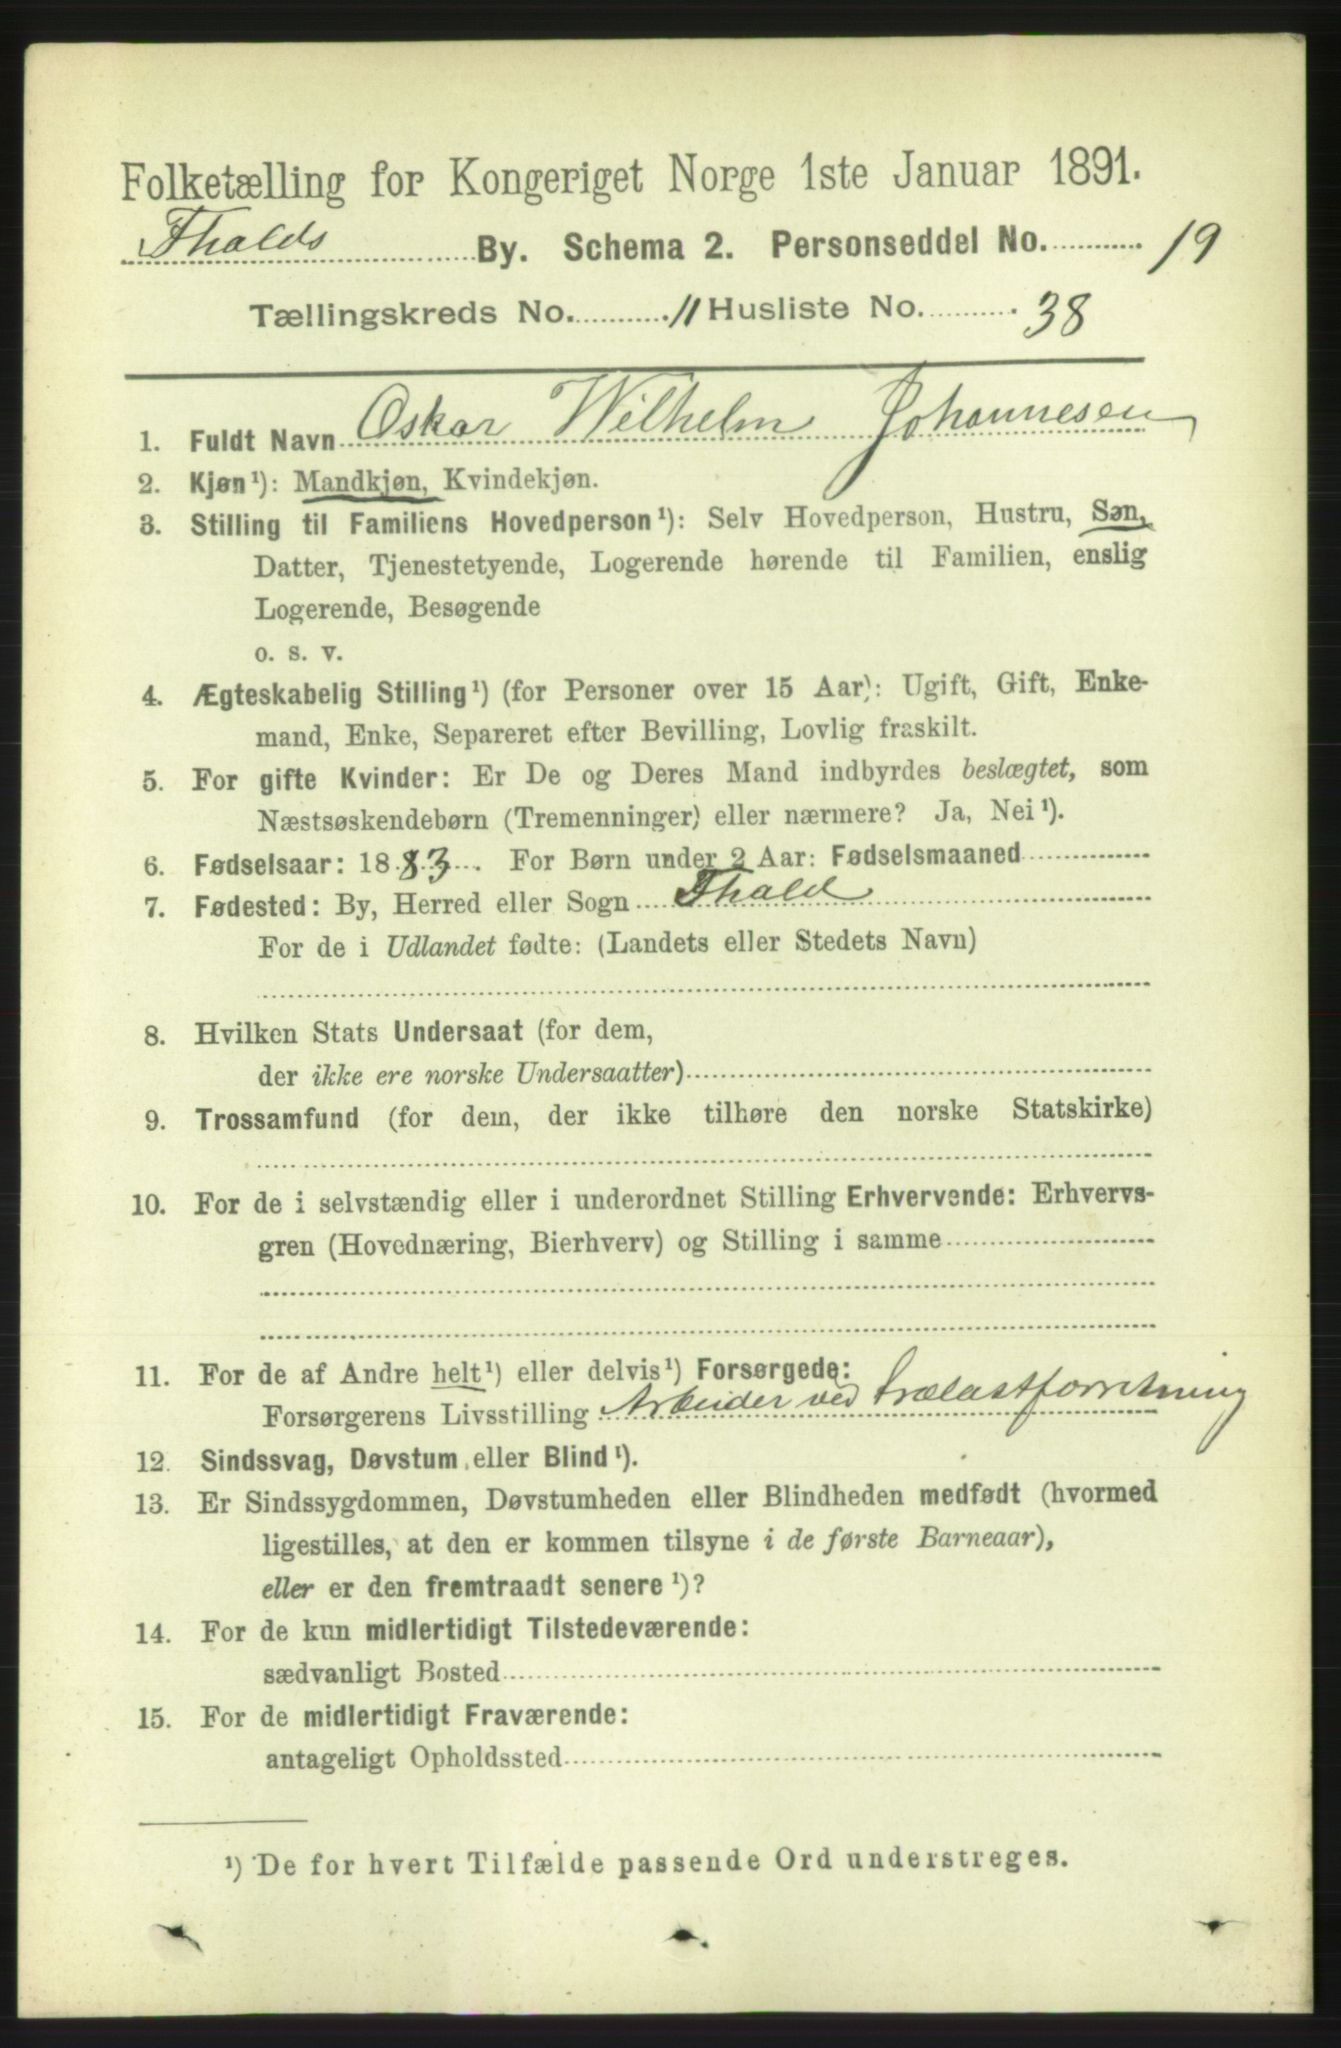 Folketælling for Kongeriget Norge 1ste Januar 1891.
Fhalds By. Schema 2. Personseddel No. 19
Tællingskreds No. 11 Husliste No. 38
1. Fuldt Navn Oskar Wilhelm Johannesen
2. Kjøn¹): Mandkjøn, Kvindekjøn.
3. Stilling til Familiens Hovedperson¹): Selv Hovedperson, Hustru, Søn,
Datter, Tjenestetyende, Logerende hørende til Familien, enslig
Logerende, Besøgende
o. s. v.
4. Ægteskabelig Stilling¹) (for Personer over 15 Aar): Ugift, Gift, Enke-
mand, Enke, Separeret efter Bevilling, Lovlig fraskilt.
5. For gifte Kvinder: Er De og Deres Mand indbyrdes beslægtet, som
Næstsøskendebørn (Tremenninger) eller nærmere? Ja, Nei¹).
6. Fødselsaar: 1883. For Børn under 2 Aar: Fødselsmaaned
7. Fødested: By, Herred eller Sogn Fhald
For de i Udlandet fødte: (Landets eller Stedets Navn)
8. Hvilken Stats Undersaat (for dem,
der ikke ere norske Undersaatter)
9. Trossamfund (for dem, der ikke tilhøre den norske Statskirke)
10. For de i selvstændig eller i underordnet Stilling Erhvervende: Erhvervs-
gren (Hovednæring, Bierhverv) og Stilling i samme
11. For de af Andre helt¹) eller delvis¹) Forsørgede:
Forsørgerens Livsstilling Arbeider ved Trælastforretning
12. Sindssvag, Døvstum eller Blind¹).
13. Er Sindssygdommen, Døvstumheden eller Blindheden medfødt (hvormed
ligestilles, at den er kommen tilsyne i de første Barneaar),
eller er den fremtraadt senere¹)?
14. For de kun midlertidigt Tilstedeværende:
sædvanligt Bosted
15. For de midlertidigt Fraværende:
antageligt Opholdssted
¹) De for hvert Tilfælde passende Ord understreges.